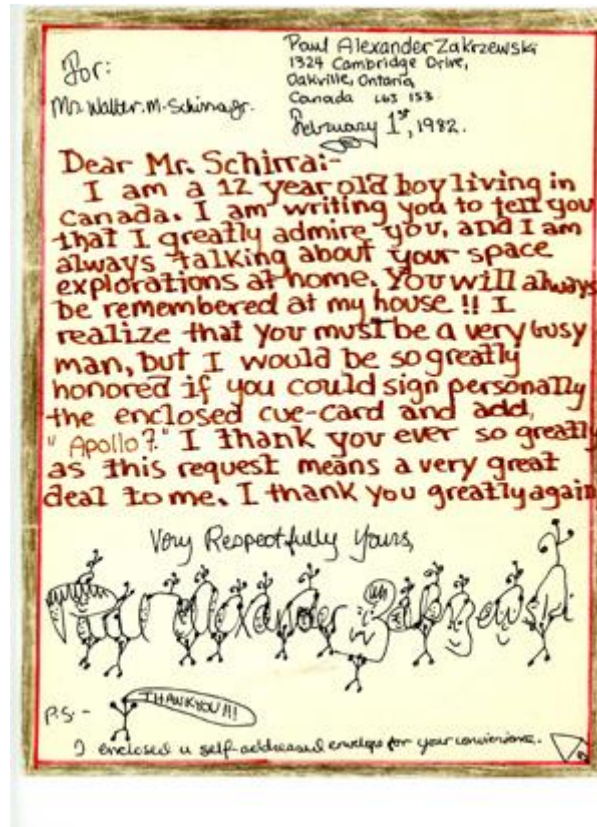 For:
Mr. Walter. M. Schirra Jr.
Paul Alexander Zakrzewski
1324 Cambridge Drive,
Oakville, Ontario,
Canada L6J 1S3
February 1st, 1982.
Dear Mr. Schirra:-
I am a 12 year old boy living in
Canada. I am writing you to tell you
that I greatly admire you, and I am
always talking about your space
explorations at home. You will always
be remembered at my house !! I
realize that you must be a very busy
man, but I would be so greatly
honored if you could sign personally
the enclosed cue-card and add,
"Apollo 7." I thank you ever so greatly
as this request means a very great
deal to me. I thank you greatly again
Very Respectfully Yours,
Paul Alexander Zakrzewski
P.S. - THANK YOU!!!
I enclosed a self-addressed envelope for your convenience.